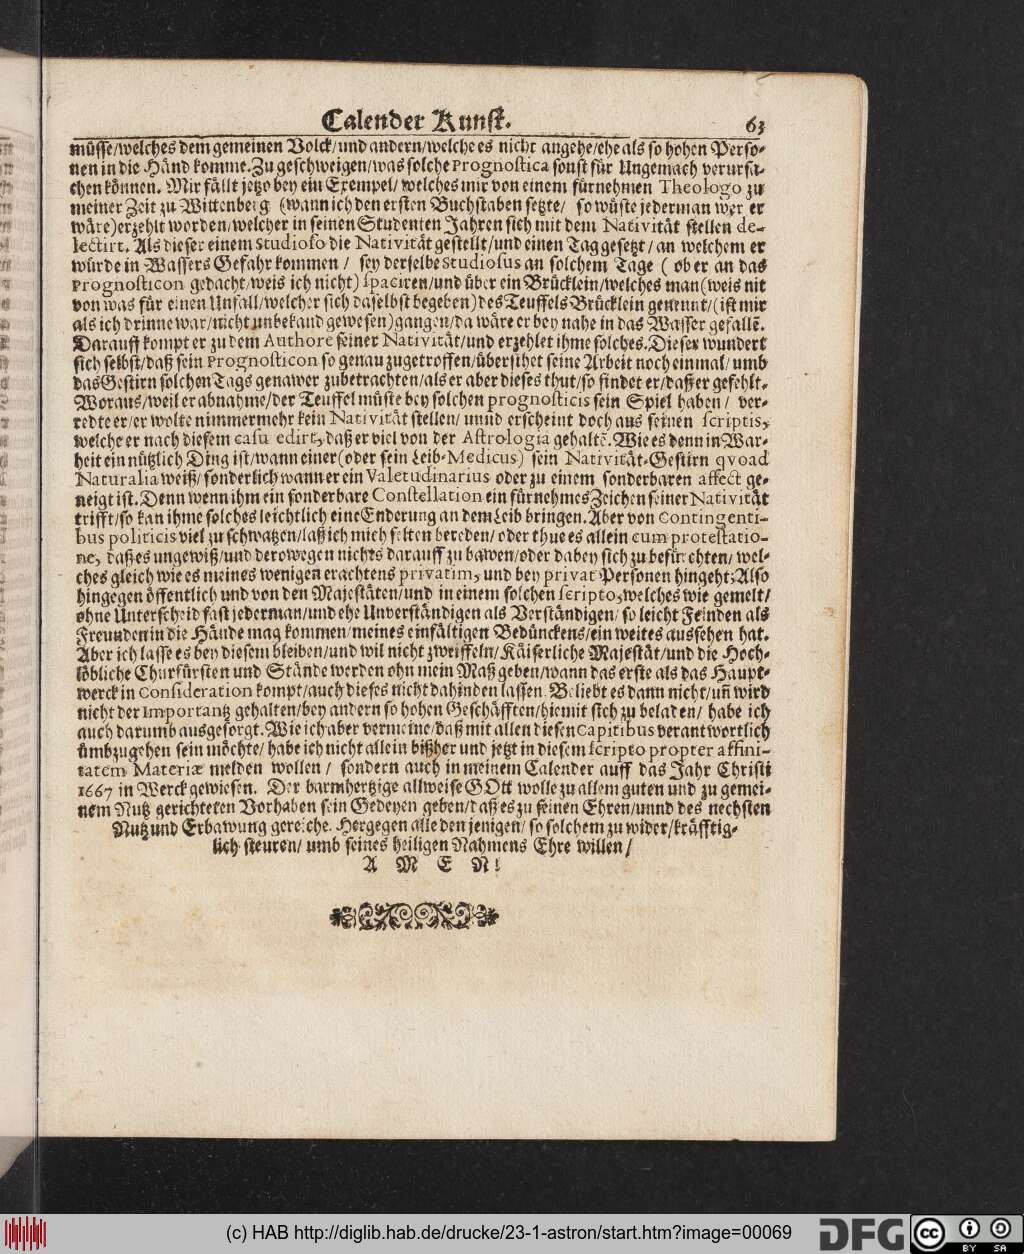 Calender Kunst. 63
müsse/welches dem gemeinen Volck/und andern/welche es nicht angehe/ehe als so hohen Perso-
nen in die Händ komme. Zu geschweigen/was solche Prognostica sonst für Ungemach verursa-
chen können. Mir fällt jetzo bey ein Exempel/ welches mir von einem fürnehmen Theologo zu
meiner Zeit zu Wittenberg (wann ich den ersten Buchstaben setzte/ so wüste jederman wer er
wäre) erzehlt worden/welcher in seinen Studenten Jahren sich mit dem Nativität stellen de-
lectirt. Als dieser einem Studioso die Nativität gestellt/und einen Tag gesetzt/ an welchem er
würde in Wassers Gefahr kommen / sey derselbe Studiosus an solchem Tage ( ob er an das
Prognosticon gedacht/weis ich nicht) spaciren/und über ein Brücklein/welches man (weis nit
von was für einen Unfall/welcher sich daselbst begeben) des Teuffels Brücklein genennt/(ist mir
als ich drinne war/nicht unbekand gewesen) gangen/da wäre er bey nahe in das Wasser gefallē.
Darauff kompt er zu dem Authore seiner Nativität/und erzehlet ihme solches. Dieser wundert
sich selbst/daß sein Prognosticon so genau zugetroffen/übersihet seine Arbeit noch einmal/ umb
das Gestirn solchen Tags genawer zubetrachten/als er aber dieses thut/so findet er/daß er gefehlt.
Woraus/weil er abnahme/der Teuffel müste bey solchen prognosticis sein Spiel haben / ver-
redte er/er wolte nimmermehr kein Nativität stellen/ unnd erscheint doch aus seinen scriptis,
welche er nach diesem casu edirt, daß er viel von der Astrologia gehaltē. Wie es denn in War-
heit ein nützlich Ding ist/wann einer (oder sein Leib-Medicus) sein Nativität-Gestirn qvoad
Naturalia weiß/ sonderlich wann er ein Valetudinarius oder zu einem sonderbaren affect ge-
neigt ist. Denn wenn ihm ein sonderbare Constellation ein fürnehmes Zeichen seiner Nativität
trifft/so kan ihme solches leichtlich eine Enderung an dem Leib bringen. Aber von Contingenti-
bus politicis viel zu schwatzen/laß ich mich selten bereden/ oder thue es allein cum protestatio-
ne, daß es ungewiß/und derowegen nichts darauff zu bawen/oder dabey sich zu befürchten/ wel-
ches gleich wie es meines wenigen erachtens privatim, und bey privat Personen hingeht; Also
hingegen öffentlich und von den Majestäten/und in einem solchen scripto, welches wie gemelt/
ohne Unterscheid fast jederman/und ehe Unverständigen als Verständigen/ so leicht Feinden als
Freunden in die Hände mag kommen/meines einfältigen Bedünckens/ein weites aussehen hat.
Aber ich lasse es bey diesem bleiben/und wil nicht zweiffeln/ Käiserliche Majestät/und die Hoch-
löbliche Churfürsten und Stände werden ohn mein Maß geben/wann das erste als das Haupt-
werck in Consideration kompt/auch dieses nicht dahinden lassen. Beliebt es dann nicht/uñ wird
nicht der Importantz gehalten/bey andern so hohen Geschäfften/hiemit sich zu beladen/ habe ich
auch darumb ausgesorgt. Wie ich aber vermeine/daß mit allen diesen Capitibus verantwortlich
ümbzugehen sein möchte/ habe ich nicht allein bißher und jetzt in diesem scripto propter affini-
tatem Materiæ melden wollen / sondern auch in meinem Calender auff das Jahr Christi
1667 in Werck gewiesen. Der barmhertzige allweise GOtt wolle zu allem guten und zu gemei-
nem Nutz gerichteten Vorhaben sein Gedeyen geben/daß es zu seinen Ehren/unnd des nechsten
Nutz und Erbawung gereiche. Hergegen alle den jenigen/ so solchem zu wider/kräfftig-
lich steuren/ umb seines heiligen Nahmens Ehre willen/
A M E N!
(c) HAB http://diglib.hab.de/drucke/23-1-astron/start.htm?image=00069
DFG
cc BY SA